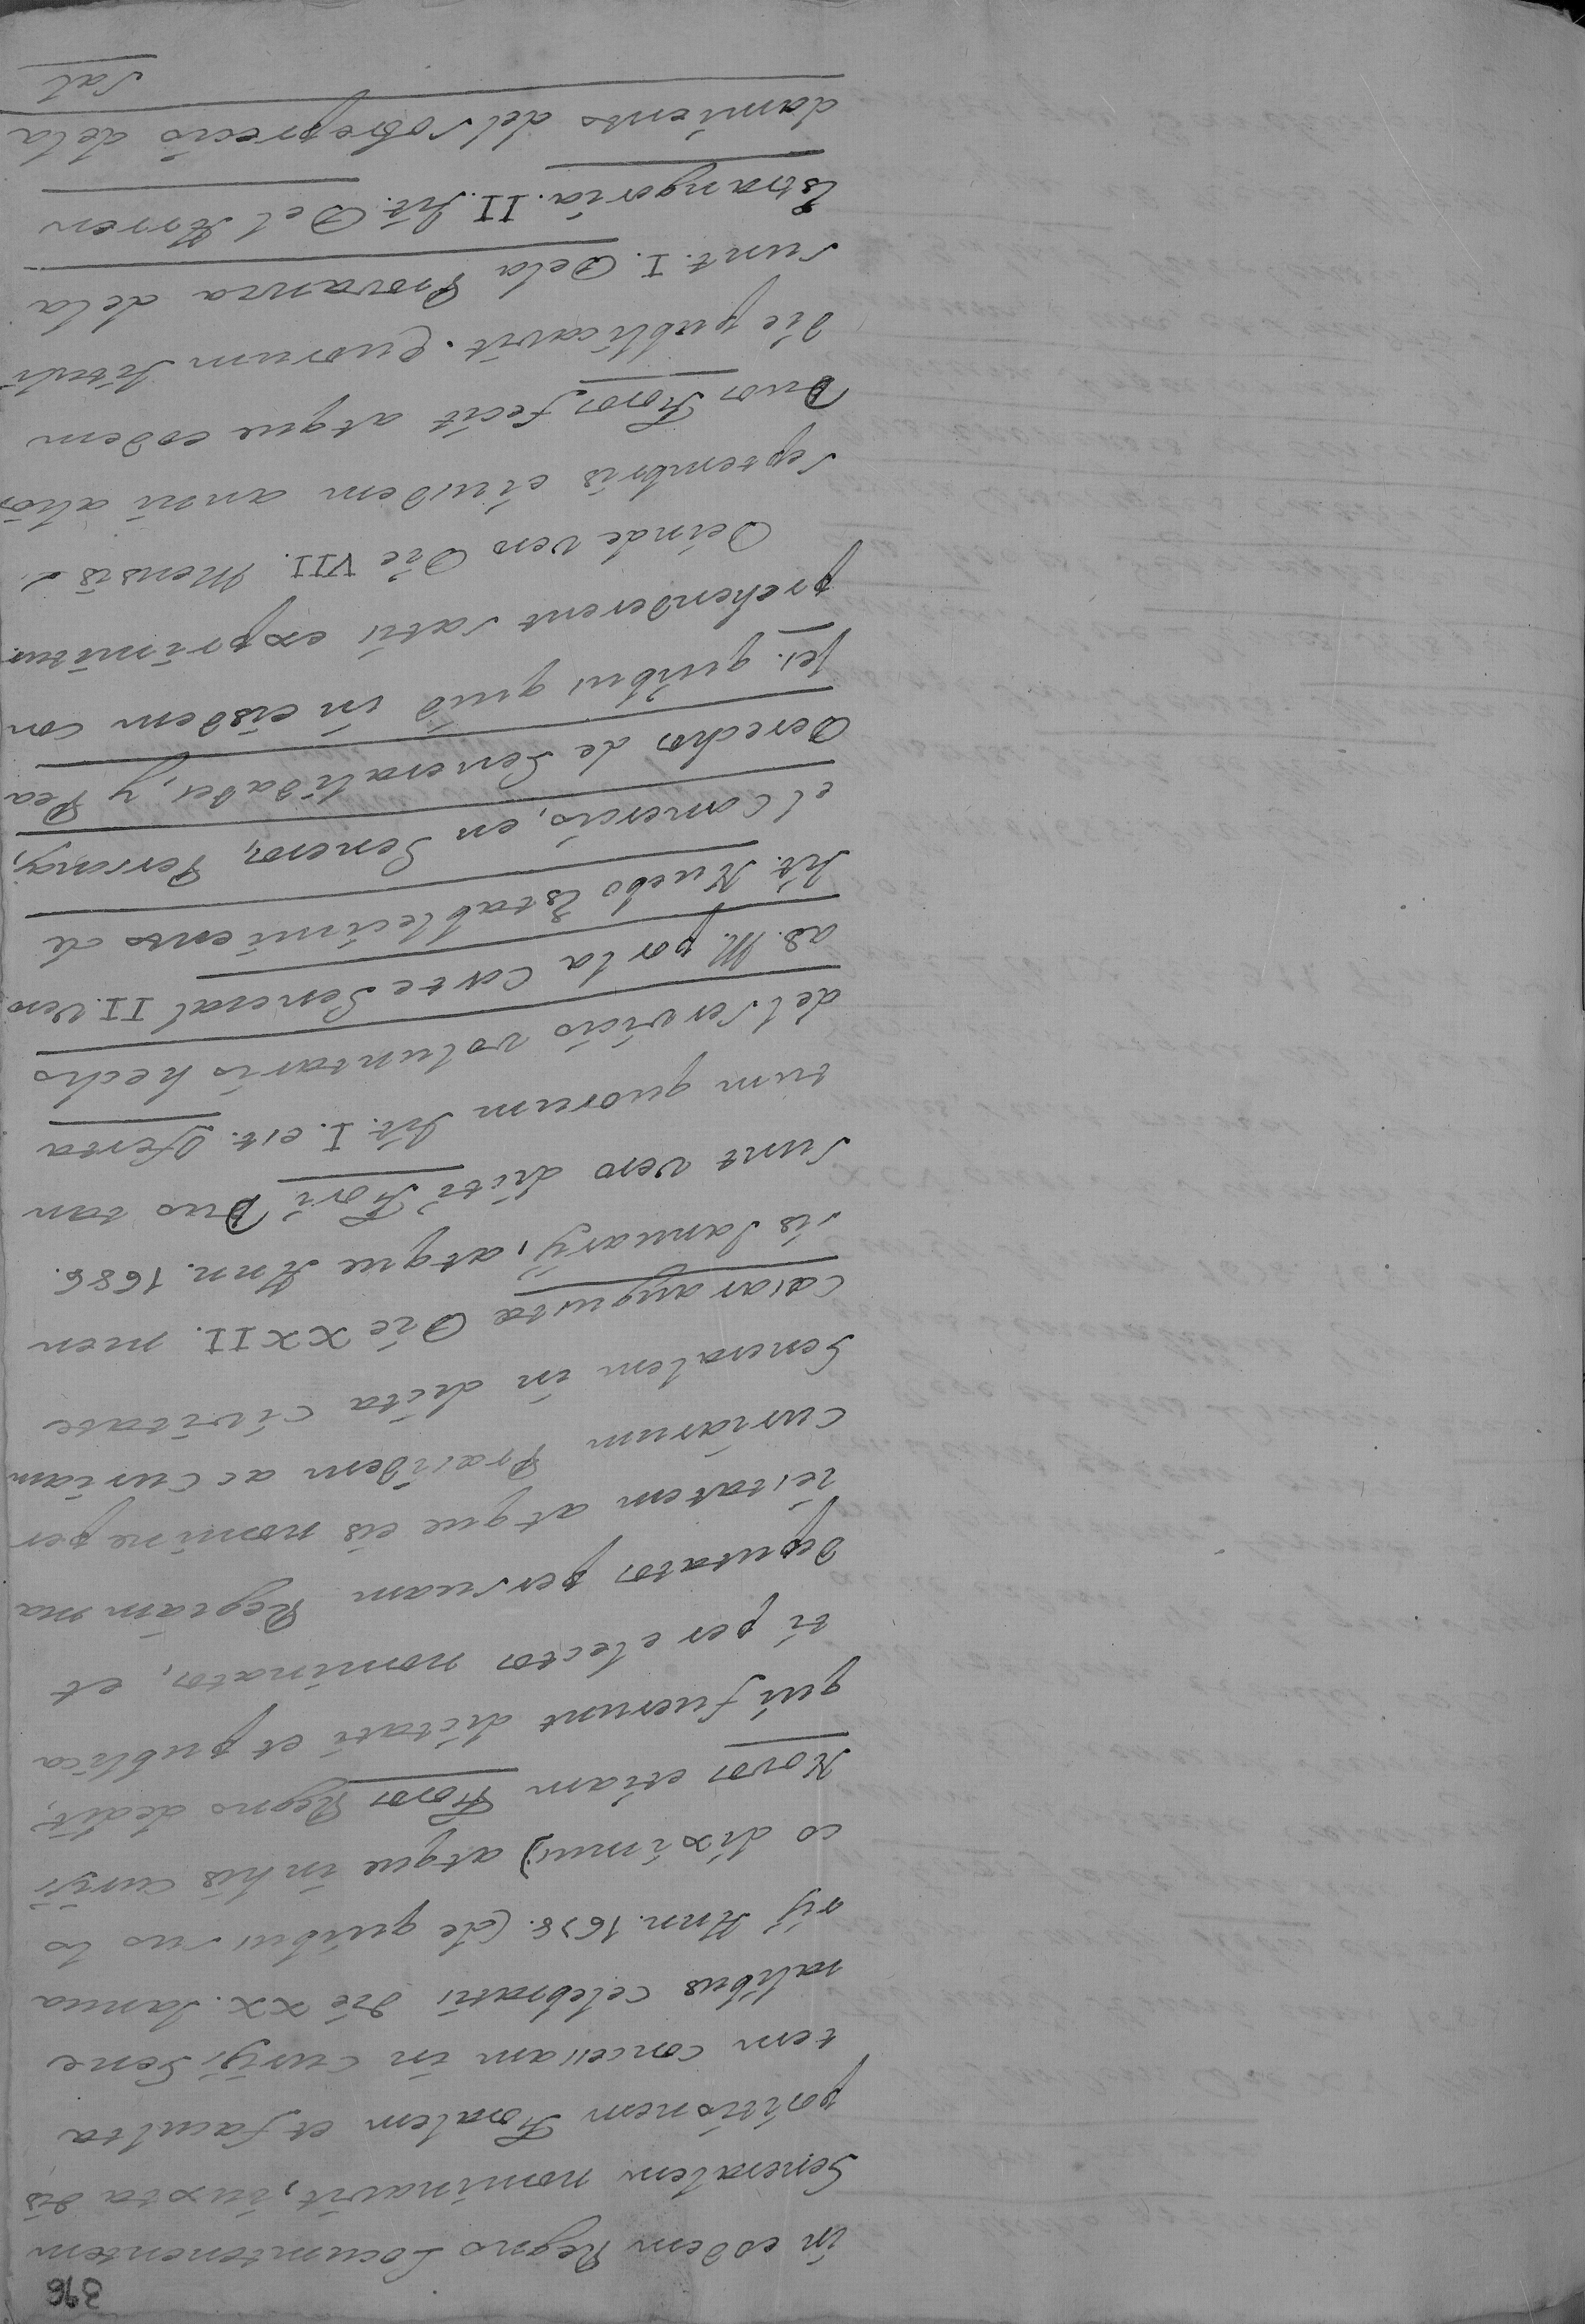 396
in eodem Regno Locumtenentem
Generalem nominavit, iuxta dis
positionem Foralem et faculta
tem concessam in Curijs Gene
ralibus celebratis die XX. Janua
rij Ann. 1678. (de quibus suo lo
co diximus) atque in his curijs
Novos etiam Foros Regno dedit,
qui fuerunt dictati et publica
ti per electos nominatos, et
deputatos per suam Regiam ma
iestatem atque eis nomine per
Curiarum Præsidem ac Curiam
Generalem in dicta Civitate
Cæsaraugusta Die XXII. men
sis Januarij, atque Ann. 1686.
Sunt vero dicti Fori Duo tan
tum quorum tit. I. est. Oferta
del Servicio voluntario hecho
a S. M. por la Corte General II. vero
tit. Nuebo Establecimiento de
el Comercio, en Generos, Perzong,
Derechos de Generalidades, y Pea
jes. quibus quid in eisdem con
prehenderent satis exprimitur.
Deinde vero Die VII. Mensis
Septembris eiusdem anni alios
Duos Foros fecit atque eodem
die publicavit. Quorum tituli
sunt. I. Dela Provanza dela
Estrangeria. II. tit. Del Arren
damiento del Sobreprecio dela
Sal